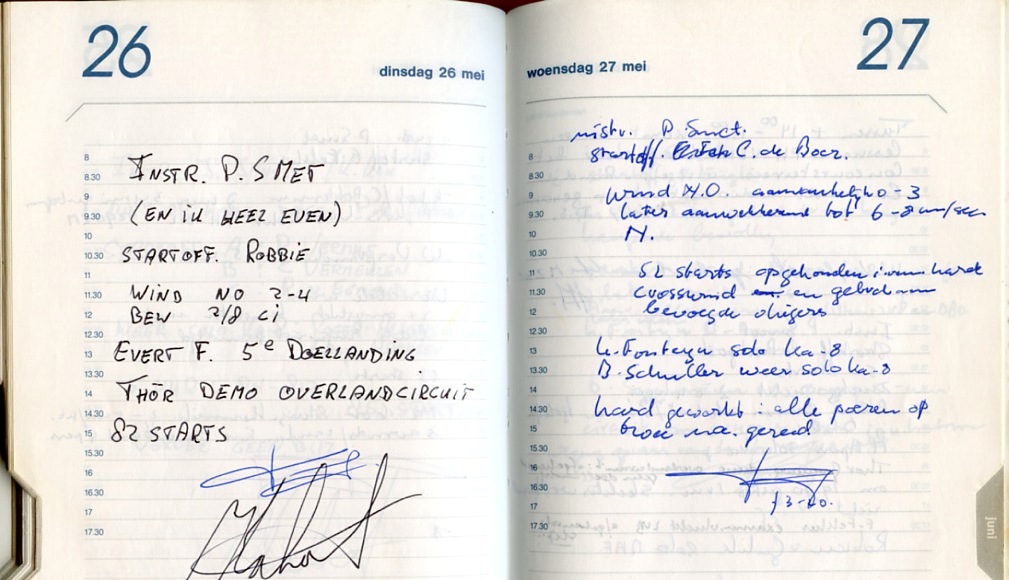 26
dinsdag 26 mei
8
8.30
9
9.30
10
10.30
11
11.30
12
12.30
13
13.30
14
14.30
15
15.30
16
16.30
17
17.30
INSTR. P. SMET
(EN IK HEEL EVEN)
STARTOFF. ROBBIE
WIND NO 2-4
BEW 2/8 Ci
EVERT F. 5e DOELLANDING
THOR DEMO OVERLANDCIRCUIT
82 STARTS
27
woensdag 27 mei
8
8.30
9
9.30
10
10.30
11
11.30
12
12.30
13
13.30
14
14.30
15
15.30
16
16.30
17
17.30
instr. P. Smet.
startoff. C. de Boer.
wind N.O. aanvankelijk 0-3
later aanwakkerend tot 6-8 m/sec
N.
52 starts opgehouden i.v.m. harde
crosswind en gebrek aan
bevoegde vliegers
solo Ka-8
B. Schuller weer solo Ka-8
hard gewerkt: alle op
gereed.
juni